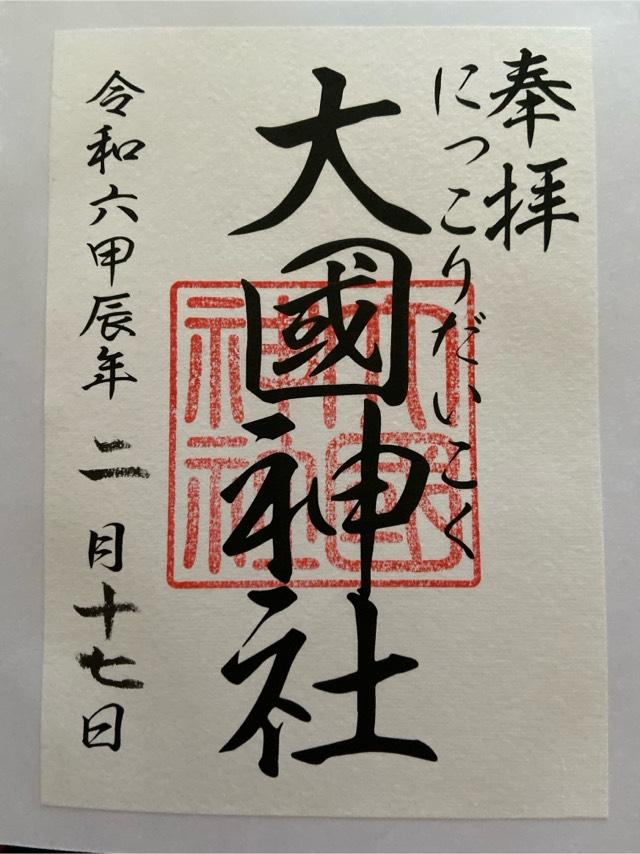 奉拝
にっこりだいこく
大國神社
令和六甲辰年 二月十七日
大國神社